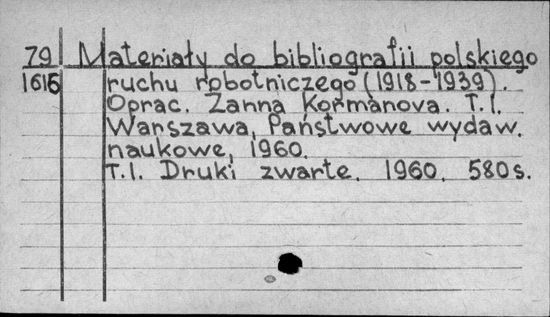 79 Materiały do bibliografii polskiego
1616 ruchu robotniczego (1918-1939).
Oprac. Żanna Kormanova. T.I.
Warszawa, Państwowe wydaw.
naukowe, 1960.
T.I. Druki zwarte. 1960. 580 s.